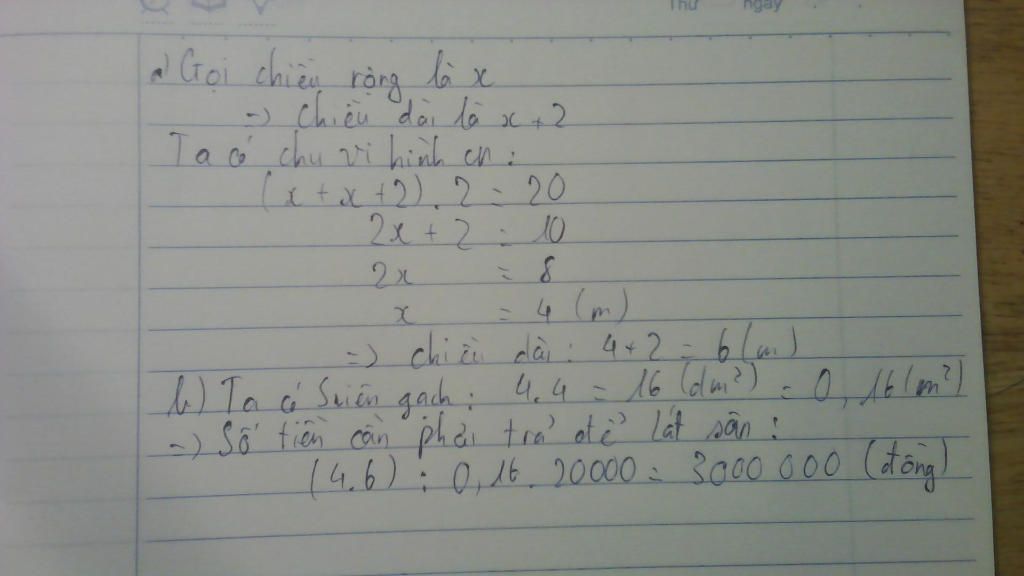 Thứ ngày
a) Gọi chiều rộng là x
=> Chiều dài là x+2
Ta có chu vi hình cn:
(x + x + 2) . 2 = 20
2x + 2 = 10
2x = 8
x = 4 (m)
=> chiều dài: 4+2 = 6(m)
b) Ta có Sviên gạch: 4.4 = 16(dm²) = 0,16(m²)
=> Số tiền cần phải trả để lát sân:
(4.6) : 0,16 . 20000 = 3000 000 (đồng)